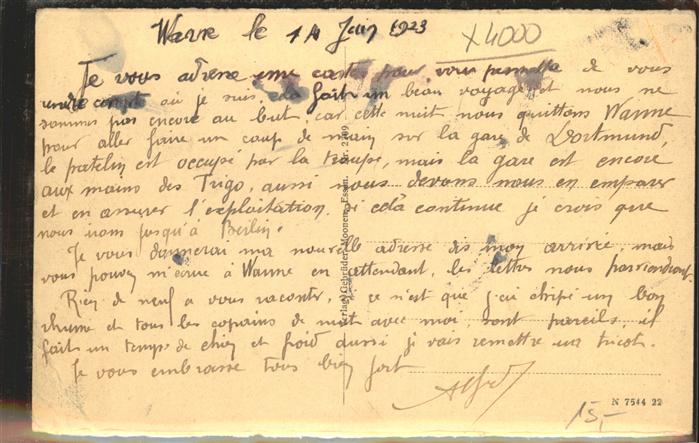 Wanne le 14 Juin 1923
X 4000
Je vous adresse une carte pour vous permettre de vous
rendre compte où je suis, fait un beau voyage et nous ne
sommes pas encore au but, car cette nuit nous quittons Wanne
pour aller faire un coup de main sur la gare de Dortmund,
le patelin est occupé par la troupe, mais la gare est encore
aux mains des Trigo, aussi nous devons nous en emparer
et en assurer l'exploitation. Si cela continue je crois que
nous irons jusqu'à Berlin.
Je vous donnerai ma nouvelle adresse dès mon arrivée, mais
vous pouvez m'écrire à Wanne en attendant, les lettres nous parviendront.
Rien de neuf a vous raconter, ce n'est que j'ai chipé un bon
rhume et tous les copains de nuit avec moi sont pareils, il
fait un temps de chien et froid aussi je vais remettre un tricot.
Je vous embrasse tous bien fort
Alfred
Verlag Gebrüder Moonen, Essen. Nr. 2709
N 7544 22
15,-